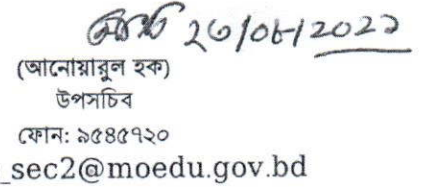 ২৬/০৮/২০২১
(আনোয়ারুল হক)
উপসচিব
ফোন: ৯৫৪৫৭২০
_sec2@moedu.gov.bd